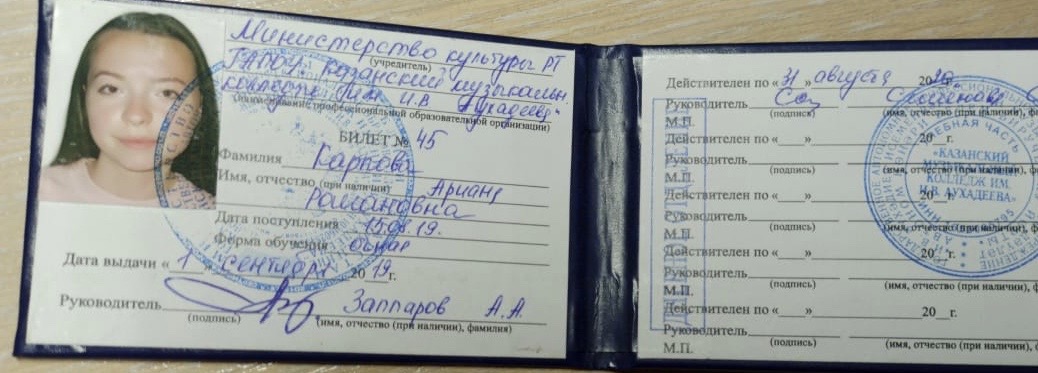 Министерство культуры РТ
(учредитель)
ГАПОУ "Казанский музыкальн.
колледж им. И.В. Аухадеева"
(наименование профессиональной образовательной организации)
БИЛЕТ № 45
Фамилия Карпова
Имя, отчество (при наличии) Ариана
Романовна
Дата поступления 15.08.19.
Форма обучения очная
Дата выдачи « 1 » сентября 2019 г.
Руководитель Заппаров А.А.
(подпись) (имя, отчество (при наличии), фамилия)
Действителен по « 31 » августа 20 г.
Руководитель
М.П. (подпись) (имя, отчество (при наличии), ф
Действителен по «___» 20__г.
Руководитель
М.П. (подпись) (имя, отчество (при наличии), ф
Действителен по «___» 20__г.
Руководитель
М.П. (подпись) (имя, отчество (при наличии), ф
Действителен по «___» 20__г.
Руководитель
М.П. (подпись) (имя, отчество (при наличии), ф
Действителен по «___» 20__г.
Руководитель
М.П. (подпись) (имя, отчество (при наличии), ф
УЧЕБНАЯ ЧАСТЬ
«КАЗАНСКИЙ
МУЗЫКАЛЬНЫЙ
КОЛЛЕДЖ ИМ.
И.В. АУХАДЕЕВА»